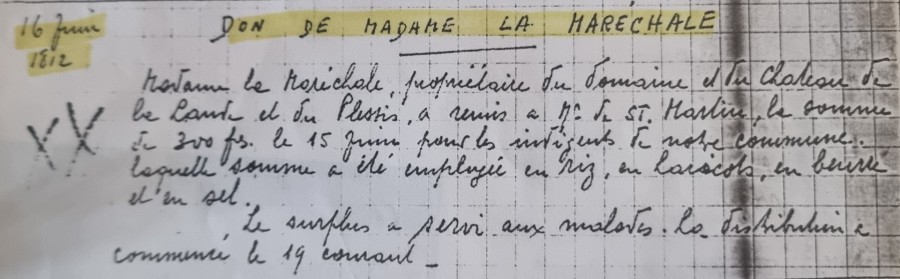 16 Juin
1812
DON DE MADAME LA MARÉCHALE
Madame la Maréchale, propriétaire du domaine et du Chateau de
la Lande et du Plessis, a remis a Mr de St. Martin, la somme
de 300 frs. le 15 Juin pour les indigents de notre commune.
laquelle somme a été employée en riz, en haricots, en beurre
et en sel.
XX
Le surplus a servi aux malades. La distribution a
commencé le 19 courant